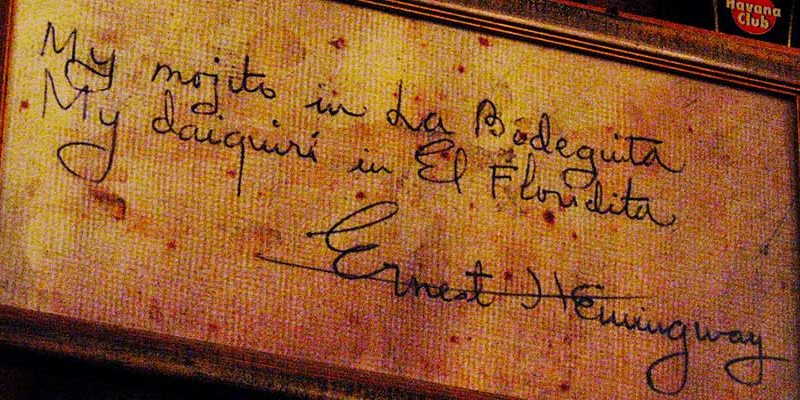 Havana
Club
My mojito in La Bodeguita
My daiquirí in El Floridita
Ernest Hemingway